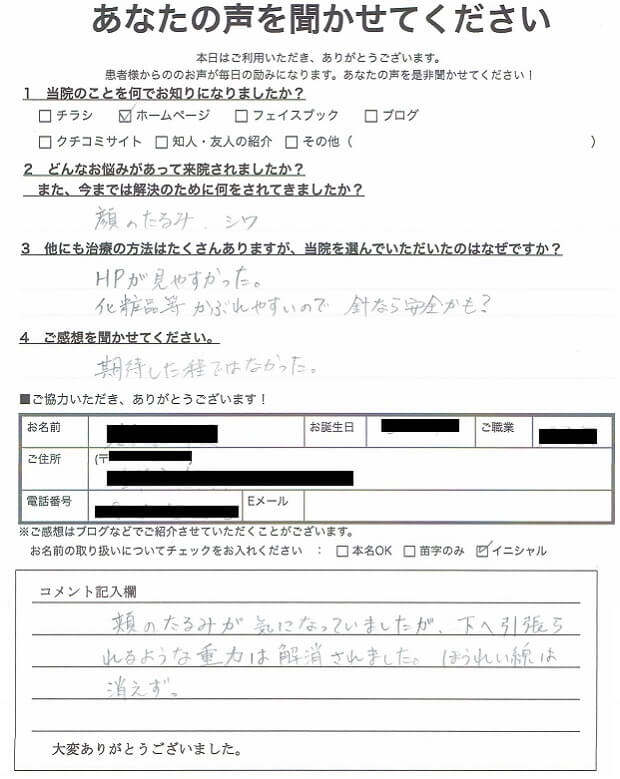 あなたの声を聞かせてください
本日はご利用いただき、ありがとうございます。
患者様からののお声が毎日の励みになります。あなたの声を是非聞かせてください！
1 当院のことを何でお知りになりましたか？
□ チラシ ☑ ホームページ □ フェイスブック □ ブログ
□ クチコミサイト □ 知人・友人の紹介 □ その他（ ）
2 どんなお悩みがあって来院されましたか？
また、今までは解決のために何をされてきましたか？
顔のたるみ、シワ
3 他にも治療の方法はたくさんありますが、当院を選んでいただいたのはなぜですか？
HPが見やすかった。
化粧品等 かぶれやすいので 針なら安全かも？
4 ご感想を聞かせてください。
期待した程ではなかった。
■ご協力いただき、ありがとうございます！
お名前 お誕生日 ご職業
ご住所 (〒
電話番号 Eメール
※ご感想はブログなどでご紹介させていただくことがございます。
お名前の取り扱いについてチェックをお入れください ： □ 本名OK □ 苗字のみ ☑ イニシャル
コメント記入欄
頬のたるみが気になっていましたが、下へ引張ら
れるような重力は解消されました。ほうれい線は
消えず。
大変ありがとうございました。